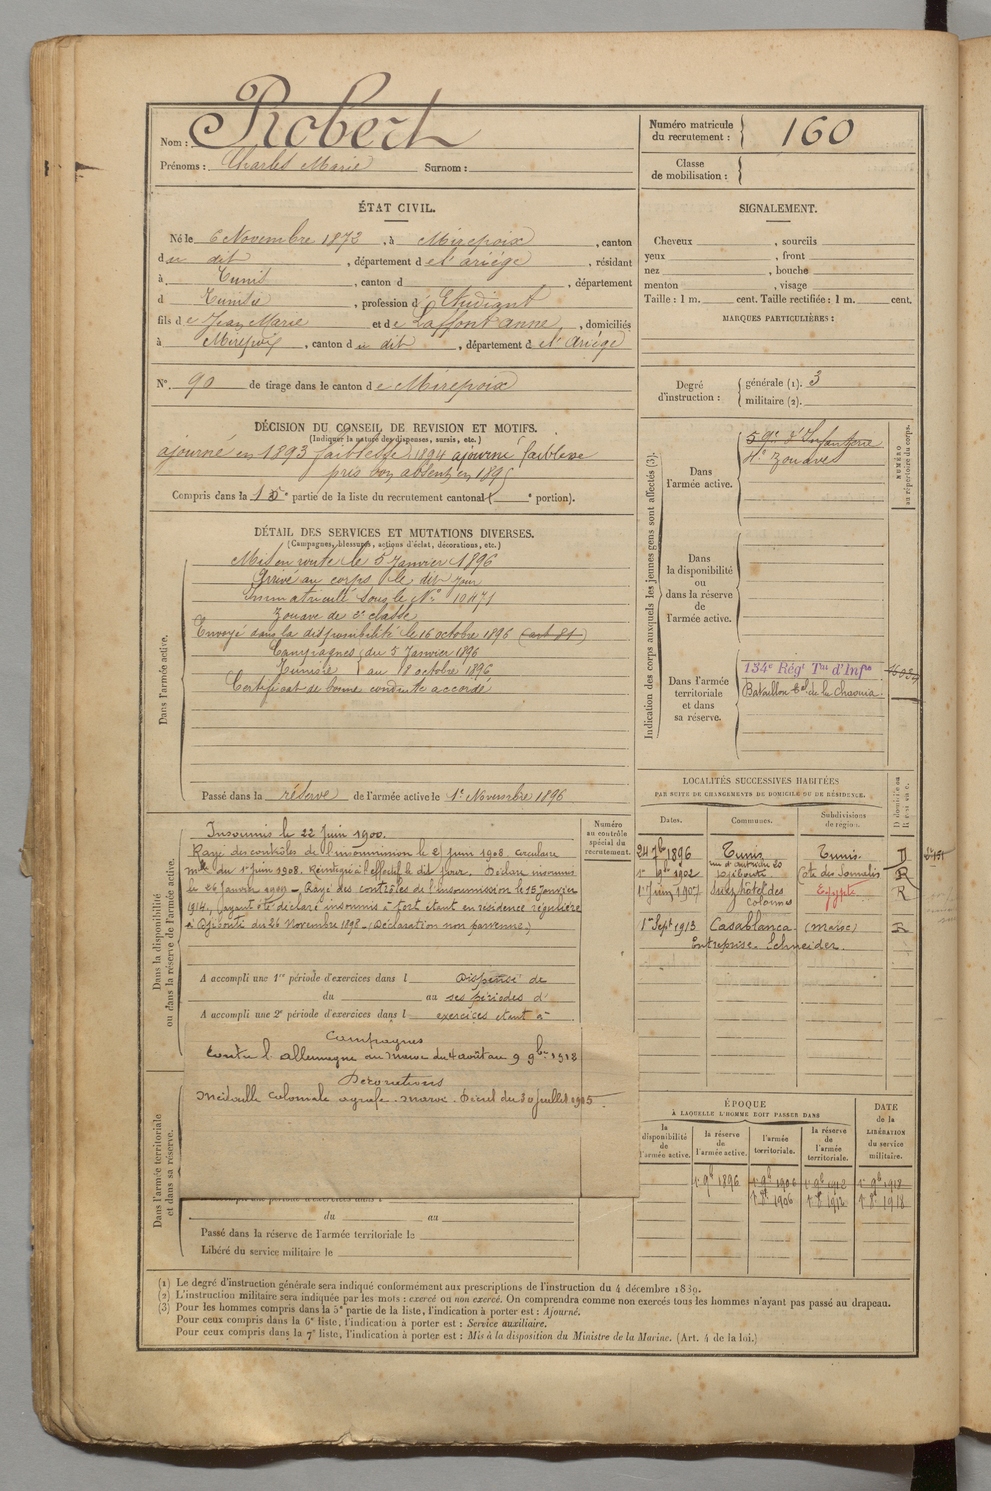 Nom : Robert
Prénoms : Charles Marie Surnom :
Numéro matricule du recrutement : 160
Classe de mobilisation :
ÉTAT CIVIL.
Né le 6 Novembre 1873, à Mirepoix, canton
du dit, département de l'ariége, résidant
à Tunis, canton d , département
d Tunisie, profession d' Etudiant
fils de Jean Marie et de Laffont anne, domiciliés
à Mirepoix, canton du dit, département de l'Ariége
N° 90 de tirage dans le canton de Mirepoix
DÉCISION DU CONSEIL DE REVISION ET MOTIFS.
(Indiquer la nature des dispenses, sursis, etc.)
ajourné en 1893 faiblesse, 1894 ajourné faiblesse
pris bon absent en 1895
Compris dans la 1e partie de la liste du recrutement cantonal ( e portion).
DÉTAIL DES SERVICES ET MUTATIONS DIVERSES.
(Campagnes, blessures, actions d'éclat, décorations, etc.)
Dans l'armée active.
Mis en route le 5 Janvier 1896
Arrivé au corps le dit jour
Immatriculé sous le N° 10471
Zouave de 2e classe
Envoyé dans la disponibilité le 16 octobre 1896 (art 81)
Campagnes du 5 Janvier 1896
Tunisie au 8 octobre 1896
Certificat de bonne conduite accordé
Passé dans la réserve de l'armée active le 1er Novembre 1896
Dans la disponibilité ou dans la réserve de l'armée active.
Numéro au contrôle spécial du recrutement.
Insoumis le 22 Juin 1900.
Rayé des contrôles de l'insoumission le 2 juin 1908. circulaire
mlle du 1er juin 1908. Réintégré à l'effectif le dit jour. Déclaré insoumis
le 26 Janvier 1909 - Rayé des contrôles de l'insoumission le 15 Janvier
1914. (ayant été déclaré insoumis à tort étant en résidence régulière
à Djibouti du 26 Novembre 1898 - (Déclaration non parvenue.)
A accompli une 1re période d'exercices dans l Dispensé de
du au ses périodes d'
A accompli une 2e période d'exercices dans l exercices étant à
Campagnes
Contre l'allemagne au maroc du 4 août au 9 9bre 1918
Décorations
Médaille coloniale agrafe - maroc - Décret du 30 juillet 1915.
Dans l'armée territoriale et dans sa réserve.
du au
Passé dans la réserve de l'armée territoriale le
Libéré du service militaire le
SIGNALEMENT.
Cheveux , sourcils
yeux , front
nez , bouche
menton , visage
Taille : 1 m. cent. Taille rectifiée : 1 m. cent.
MARQUES PARTICULIÈRES :
Degré d'instruction : générale (1). 3
militaire (2).
Indication des corps auxquels les jeunes gens sont affectés (3).
NUMÉRO au répertoire du corps.
Dans l'armée active.
59e d'Infanterie
4e Zouaves
Dans la disponibilité ou dans la réserve de l'armée active.
Dans l'armée territoriale et dans sa réserve.
134e Régt Tal d'Infie
Bataillon tal de la Chaouia.
LOCALITÉS SUCCESSIVES HABITÉES
PAR SUITE DE CHANGEMENTS DE DOMICILE OU DE RÉSIDENCE.
Dates. Communes. Subdivisions de région. D domicile ou R résidence.
24 7bre 1896 Tunis Tunis. D
1er 9bre 1902 Djibouti Côte des Somalis R
1er Juin 1907 Suez hôtel des Colonnes Egypte R
1er Sept 1913 Casablanca (Maroc) R
Entreprise Schneider.
ÉPOQUE
À LAQUELLE L'HOMME DOIT PASSER DANS
DATE de la LIBÉRATION du service militaire.
la disponibilité de l'armée active. la réserve de l'armée active. l'armée territoriale. la réserve de l'armée territoriale.
1er 9b 1896 1er 9b 1906 1er 9b 1912 1er 9b 1918
1er 8b 1906 1er 8b 1912 1er 8b 1918
(1) Le degré d'instruction générale sera indiqué conformément aux prescriptions de l'instruction du 4 décembre 1889.
(2) L'instruction militaire sera indiquée par les mots : exercé ou non exercé. On comprendra comme non exercés tous les hommes n'ayant pas passé au drapeau.
(3) Pour les hommes compris dans la 5e partie de la liste, l'indication à porter est : Ajourné.
Pour ceux compris dans la 6e liste, l'indication à porter est : Service auxiliaire.
Pour ceux compris dans la 7e liste, l'indication à porter est : Mis à la disposition du Ministre de la Marine. (Art. 4 de la loi.)